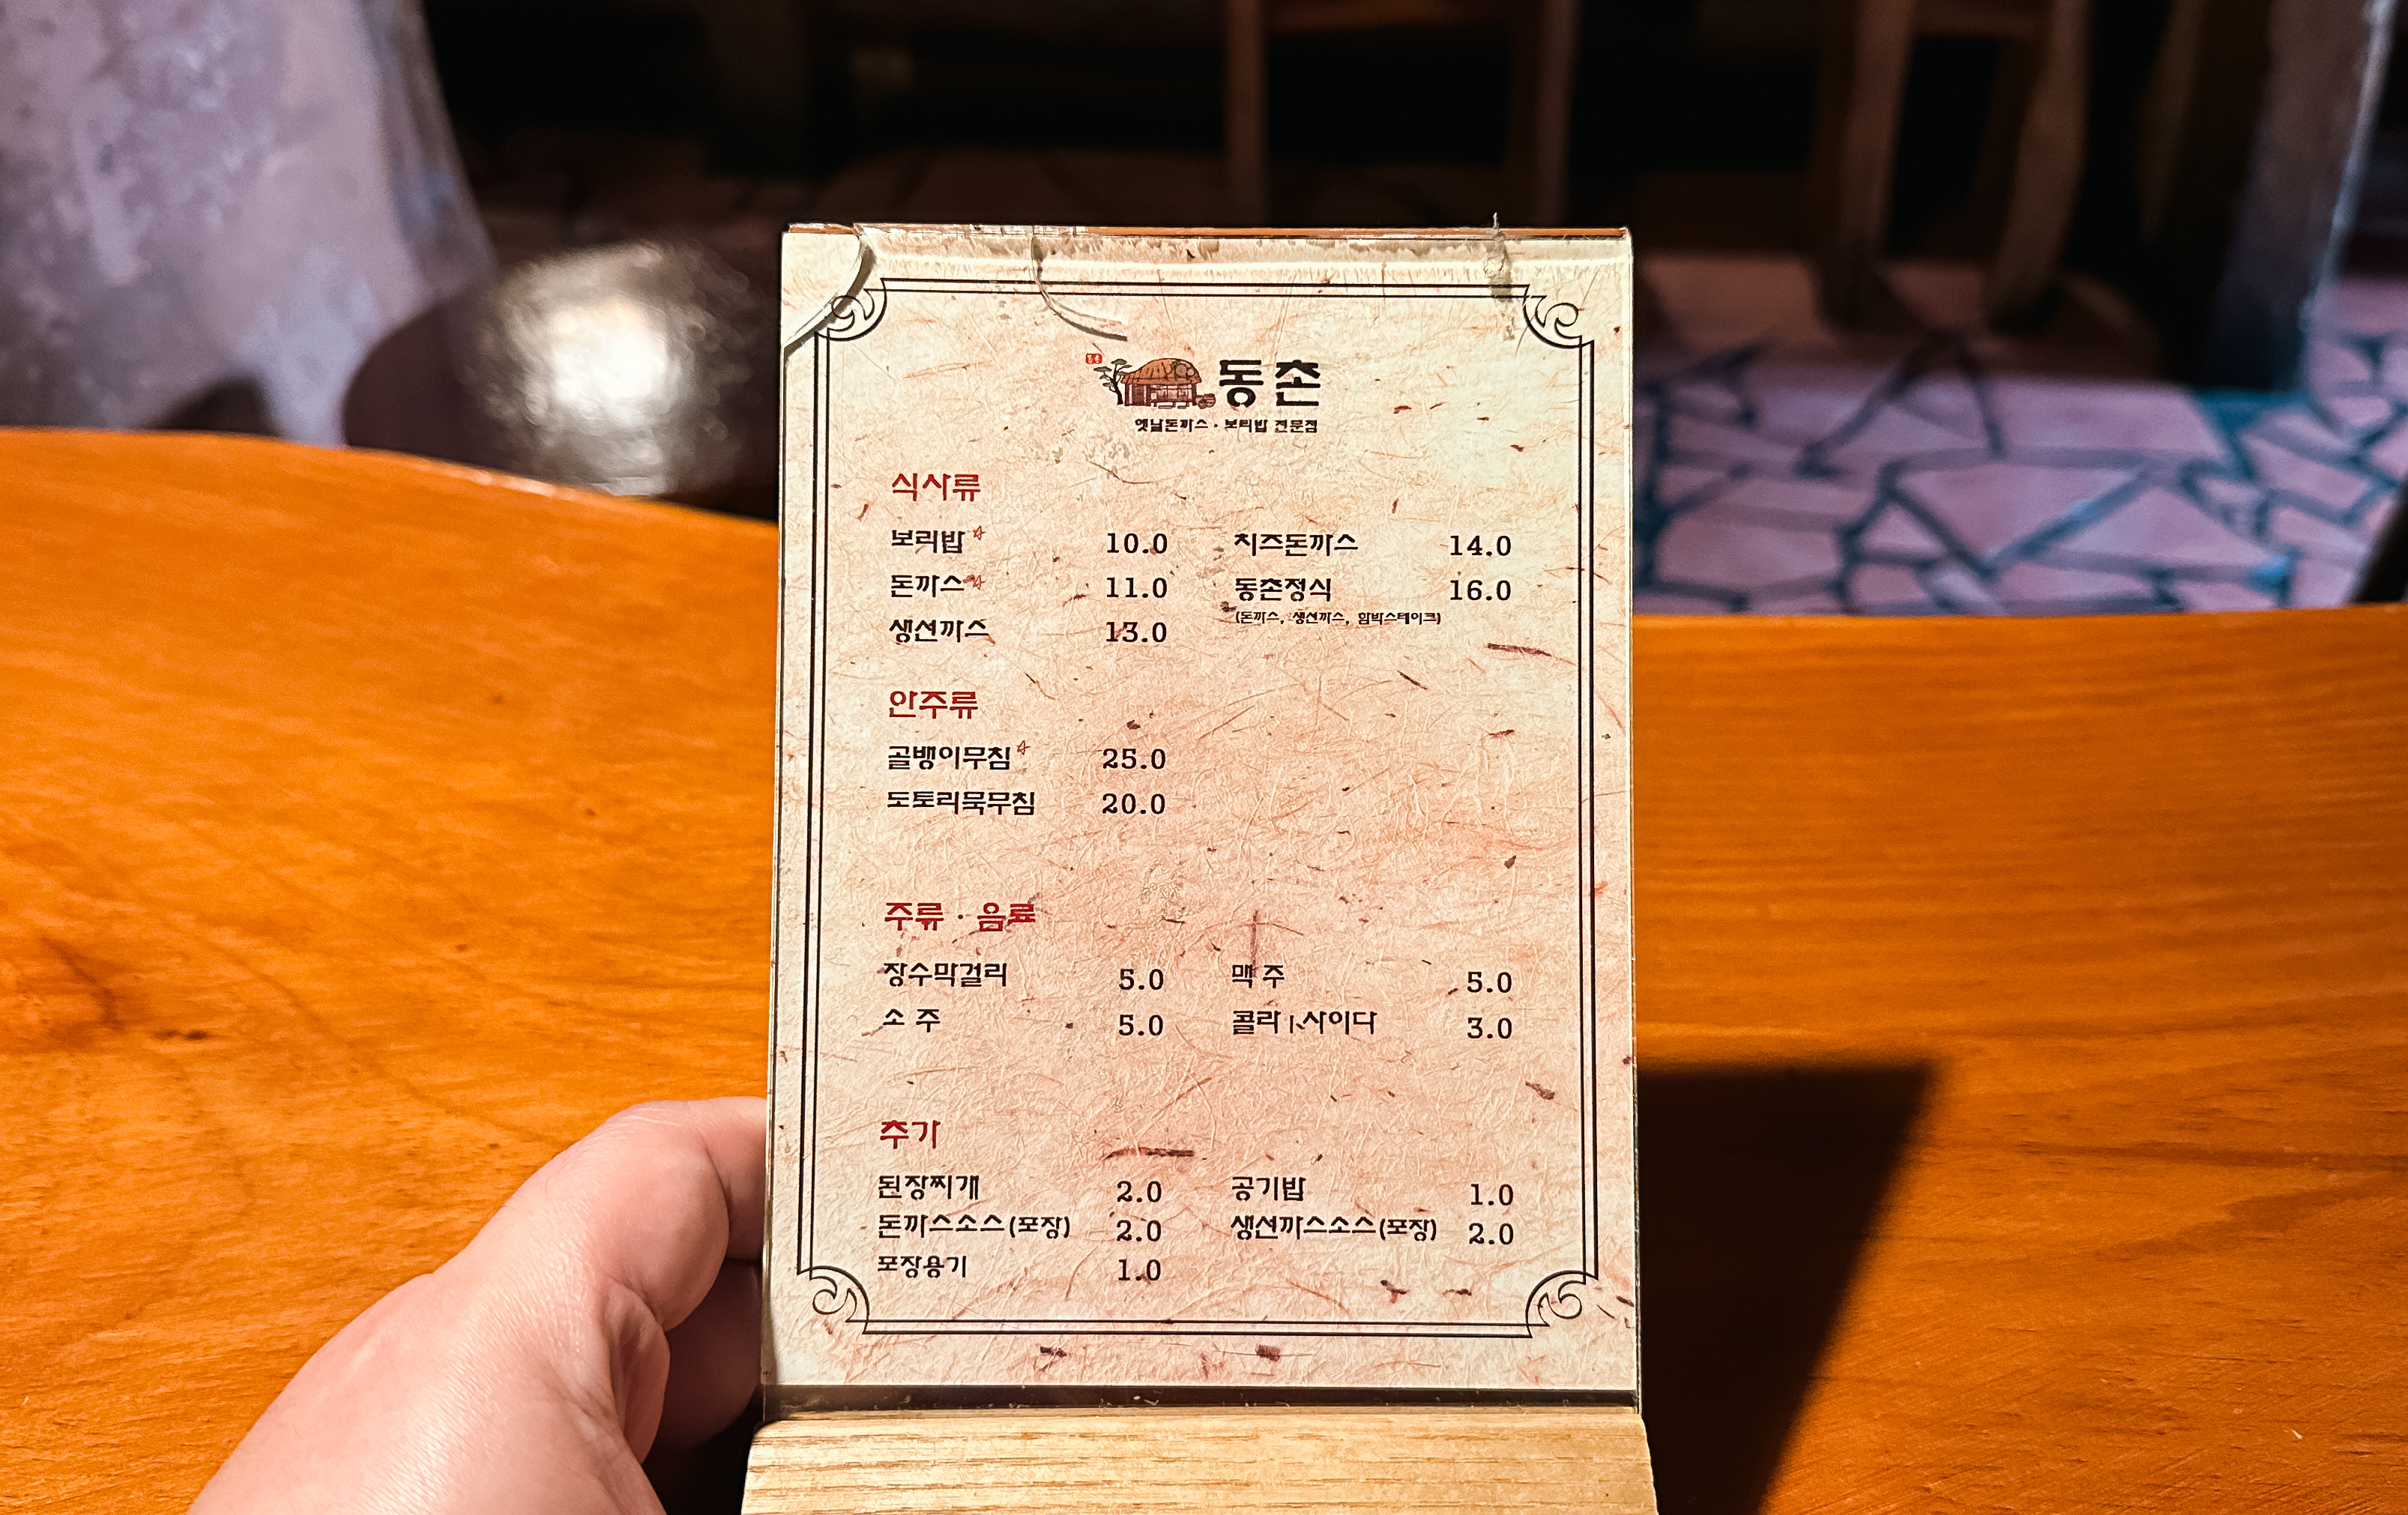 동촌
옛날돈까스 · 보리밥 전문점
식사류
보리밥 10.0 치즈돈까스 14.0
돈까스 11.0 동촌정식 16.0
(돈까스, 생선까스, 함박스테이크)
생선까스 13.0
안주류
골뱅이무침 25.0
도토리묵무침 20.0
주류 · 음료
장수막걸리 5.0 맥 주 5.0
소 주 5.0 콜라 | 사이다 3.0
추가
된장찌개 2.0 공기밥 1.0
돈까스소스(포장) 2.0 생선까스소스(포장) 2.0
포장용기 1.0